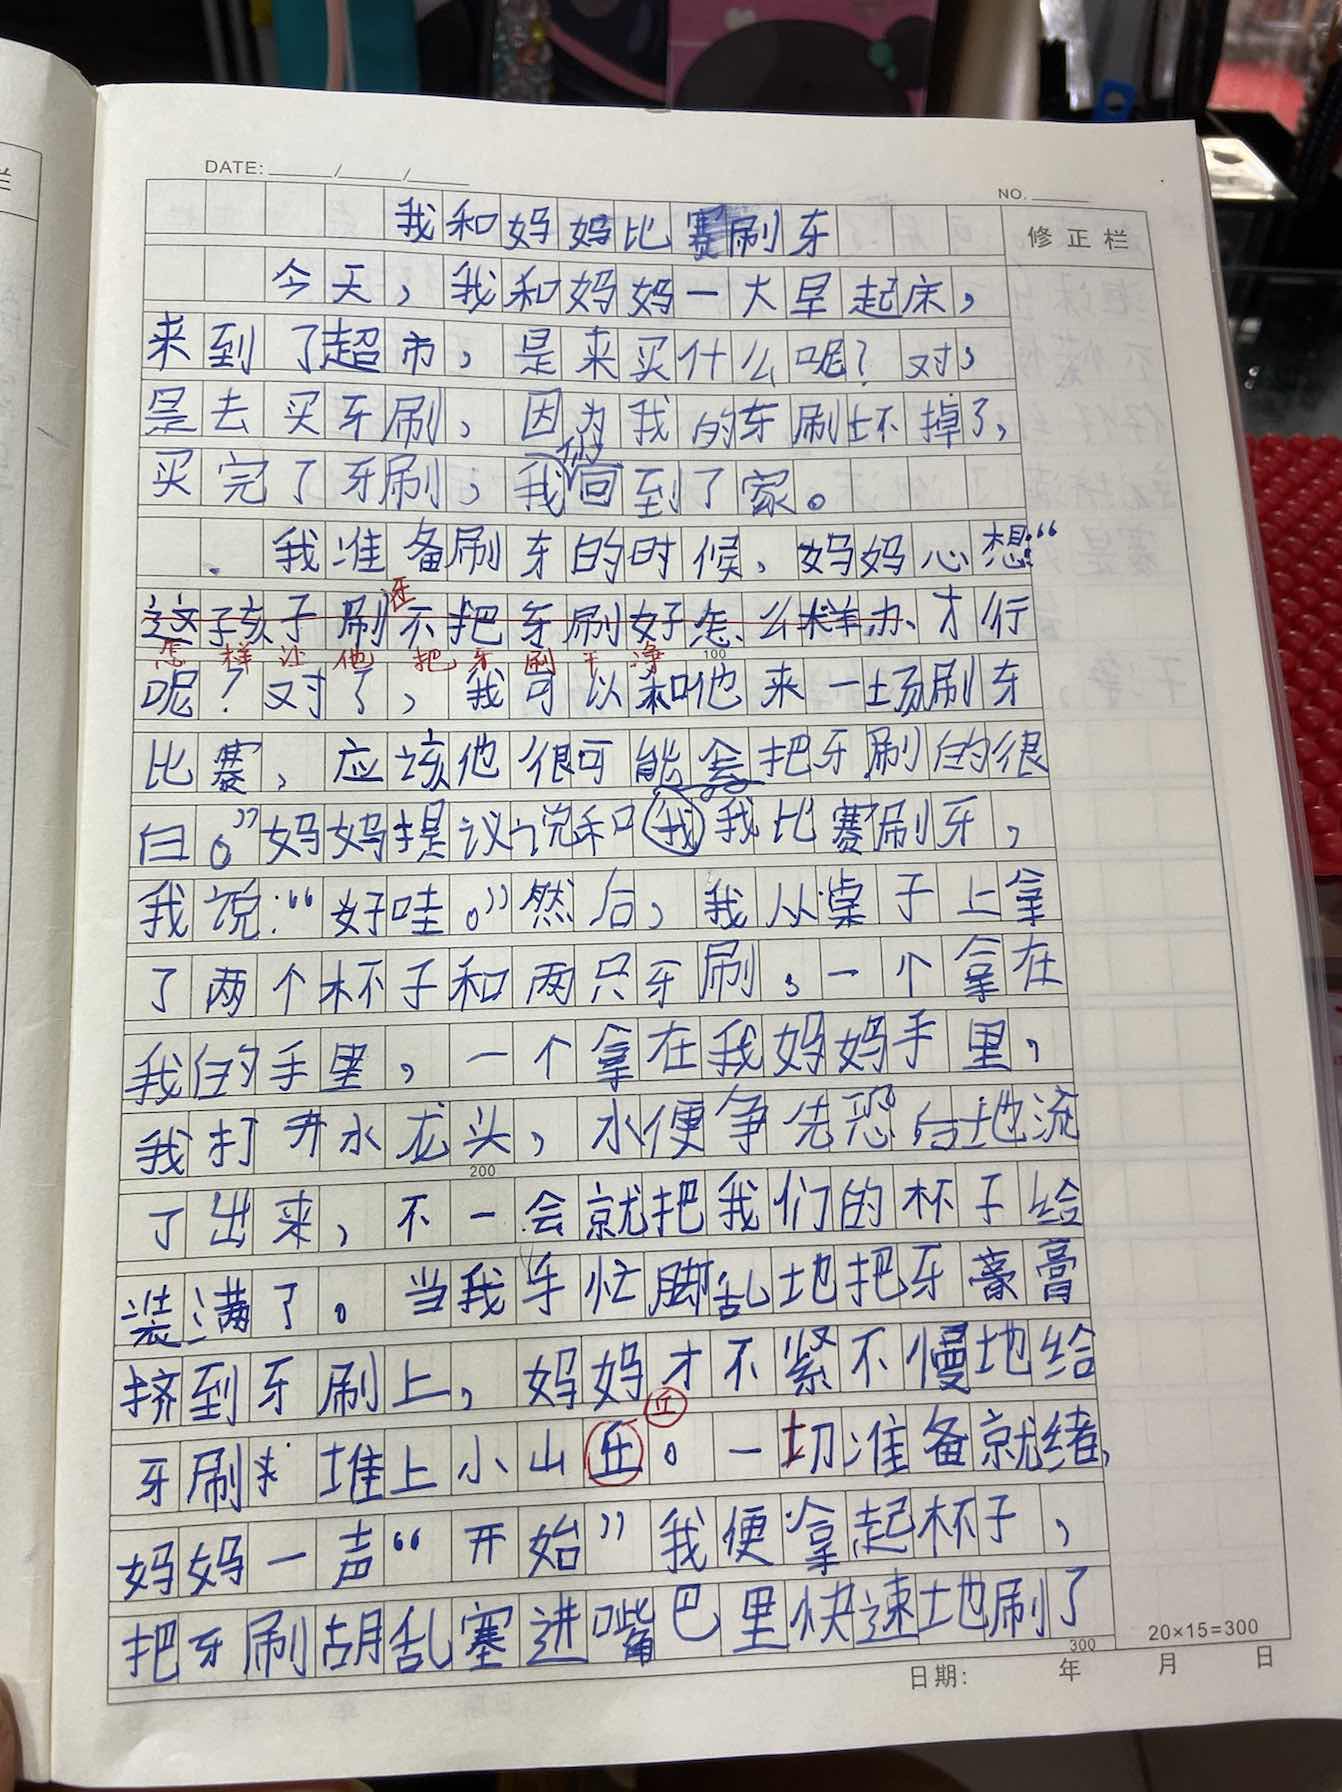 DATE: / /
NO.
我和妈妈比赛刷牙
修正栏
今天，我和妈妈一大早起床，
来到了超市，是来买什么呢？对，
是去买牙刷，因为我的牙刷坏掉了，
们
买完了牙刷，我回到了家。
我准备刷牙的时候，妈妈心想“
还
这孩子刷不把牙刷好怎么样办、才行
怎样让他把牙刷干净
100
呢？对了，我可以和他来一场刷牙
比赛，应该他很可能会把牙刷的很
白。”妈妈提议说和我我比赛刷牙，
我说：“好哇。”然后，我从桌子上拿
了两个杯子和两只牙刷，一个拿在
我的手里，一个拿在我妈妈手里，
我打开水龙头，水便争先恐后地流
200
了出来，不一会就把我们的杯子给
装满了。当我手忙脚乱地把牙膏
挤到牙刷上，妈妈才不紧不慢地给
丘
牙刷堆上小山丘。一切准备就绪，
妈妈一声“开始”我便拿起杯子，
把牙刷胡乱塞进嘴巴里快速地刷了
300
20×15=300
日期： 年 月 日